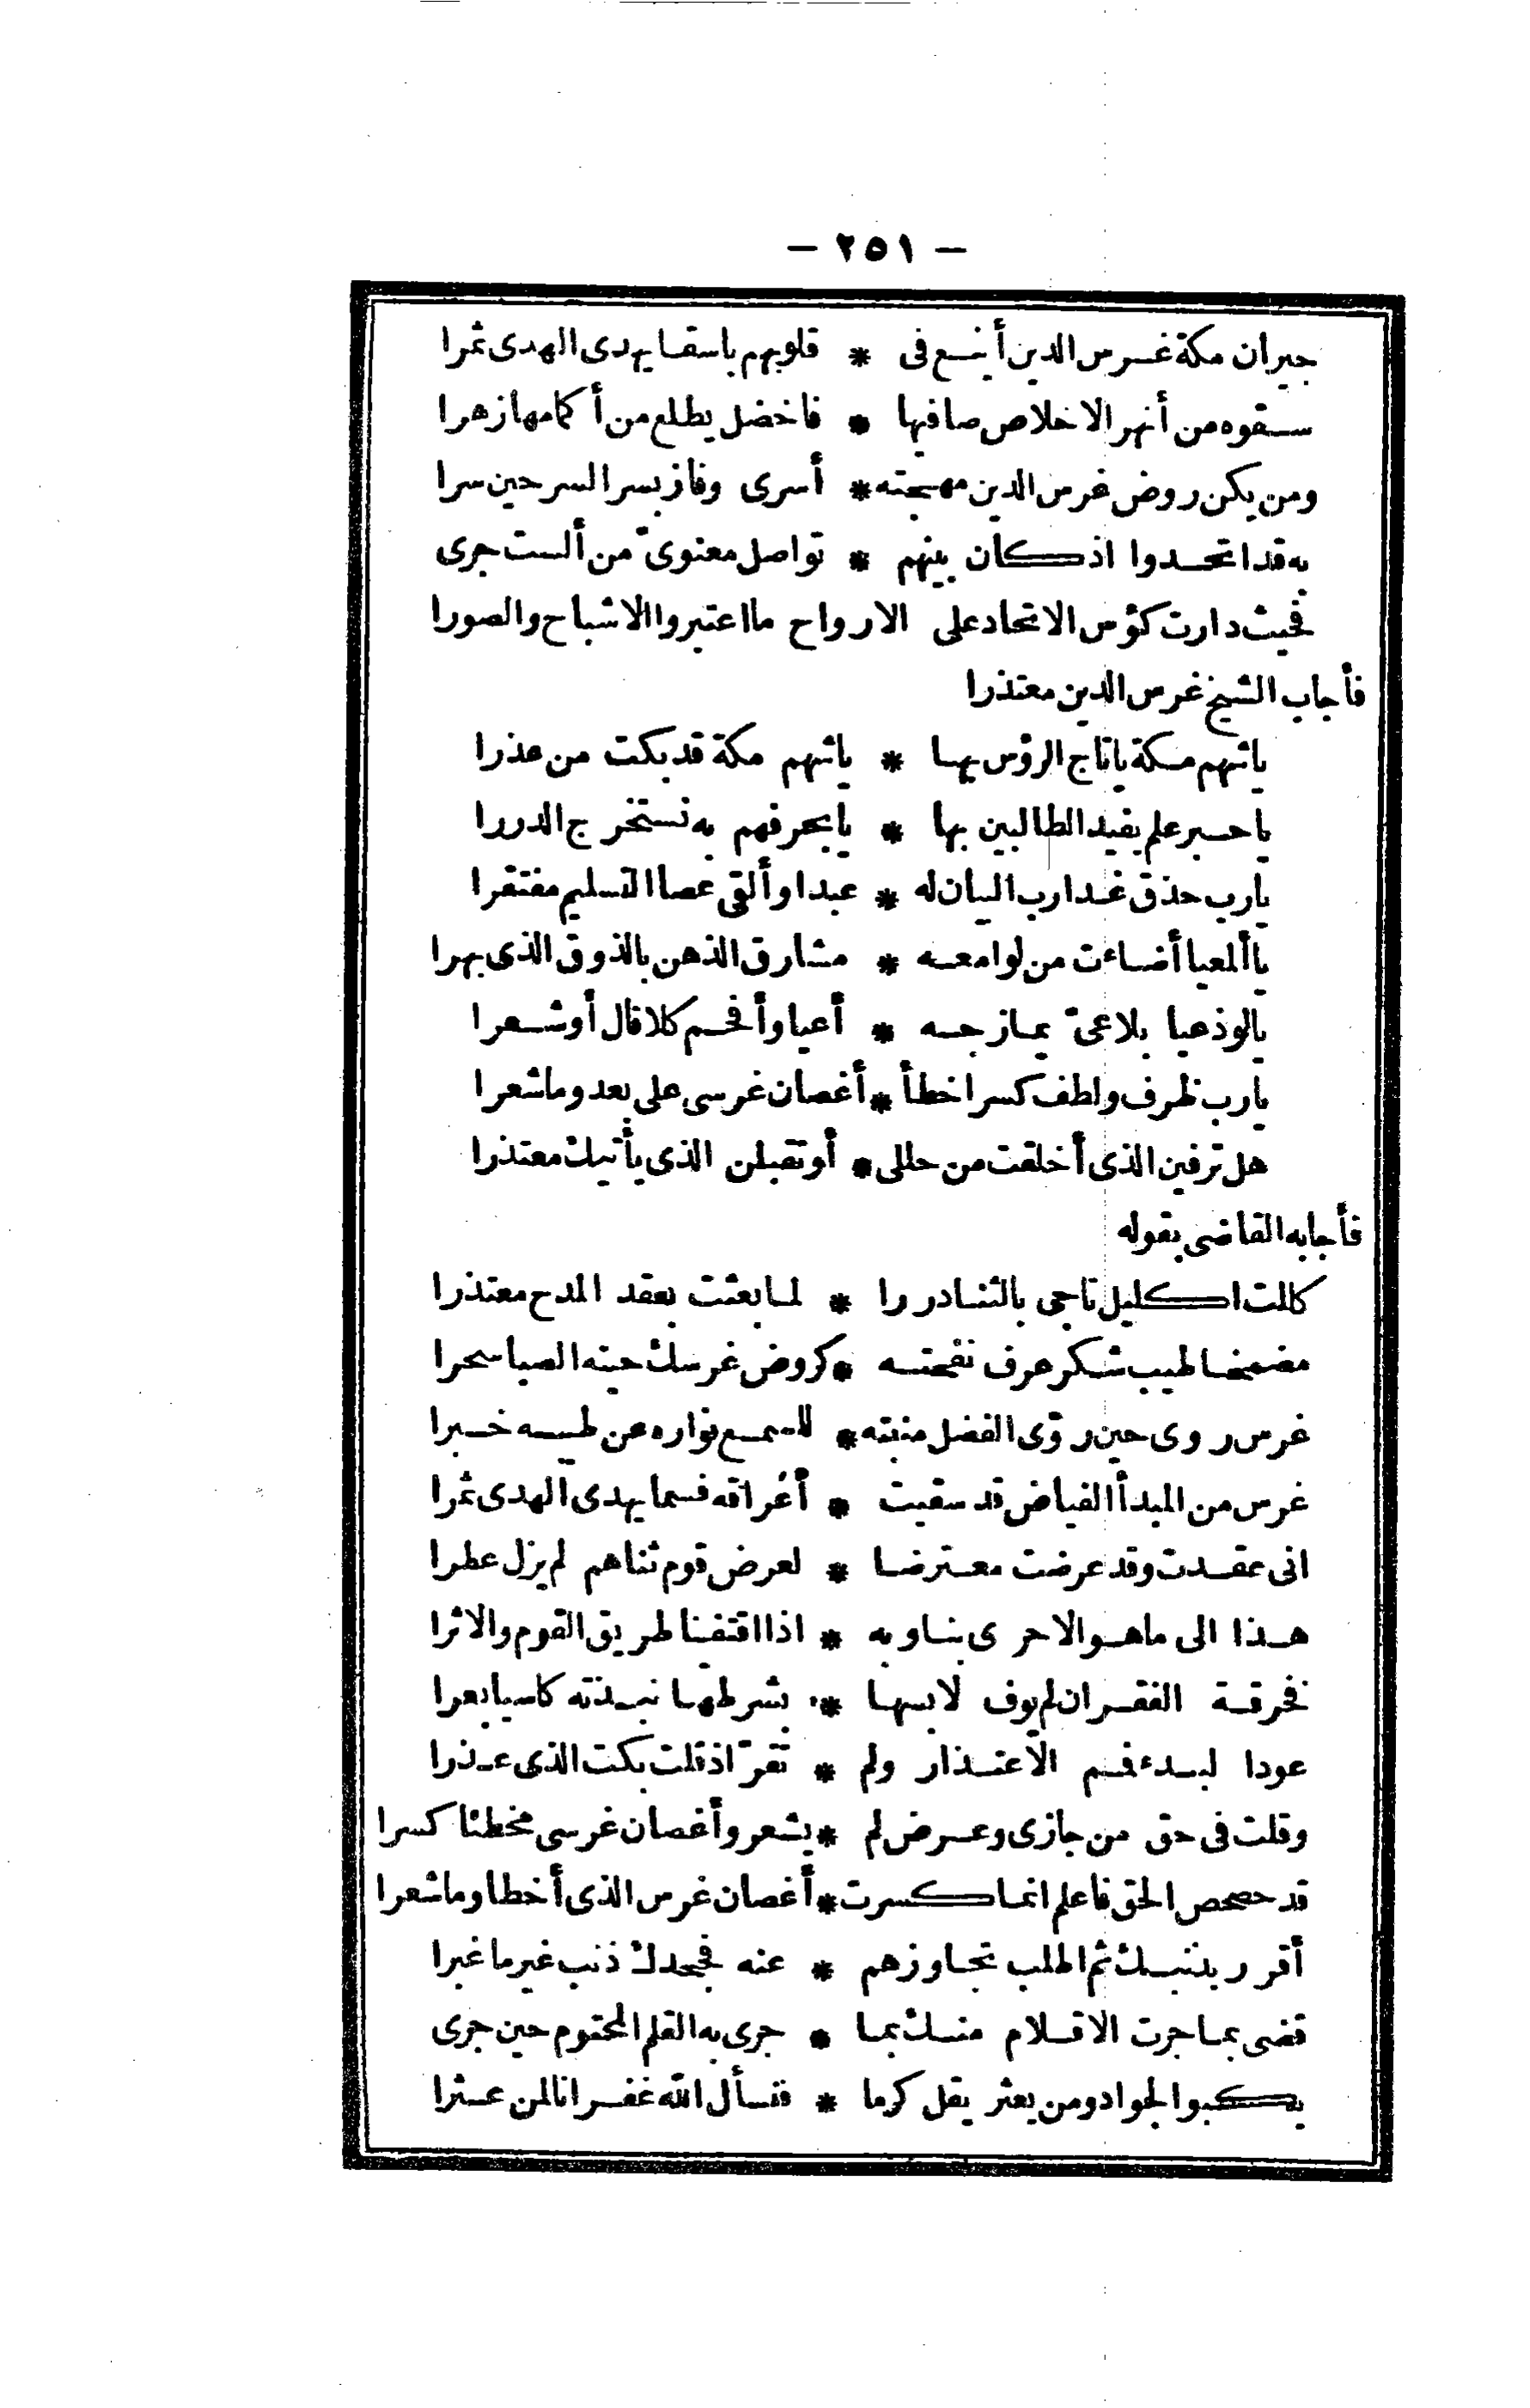 — ٢٥١ —
جيران مكة غرس الدين أينع فى * قلوبهم باسقا يهدى الهدى ثمرا
سقوه من أنهر الاخلاص صافيها * فاخضل يطلع من أكمامها زهرا
ومن يكن روض غرس الدين مهجته * أسرى وفاز بسر السر حين سرا
به قد اتحدوا اذ كان بينهم * تواصل معنوىّ من ألست جرى
فحيث دارت كؤس الاتحاد على الارواح ما اعتبروا الاشباح والصورا
فأجاب الشيخ غرس الدين معتذرا
ياشهم مكة ياتاج الرؤس بها * ياشهم مكة قد بكت من عذرا
ياحبر علم يفيد الطالبين بها * يابحر فهم به نستخرج الدررا
يارب حذق غدا رب البيان له * عبدا وألقى عصا التسليم مفتقرا
يا ألمعيا أضاءت من لوامعه * مشارق الذهن بالذوق الذى بهرا
يالوذعيا بلا عىّ يمازجه * أعيا وأفحم كلا قال أو شعرا
يارب ظرف ولطف كسرا خطأ * أغصان غرسى على بعد وما شعرا
هل ترفين الذى أخلقت من حللى * أو تقبلن الذى يأتيك معتذرا
فأجابه القاضى بقوله
كللت اكليل تاجى بالثنا دررا * لما بعثت بعقد المدح معتذرا
مضمخا طيب شكر عرف نفحته * كروض غرسك حيته الصبا سحرا
غرس روى حين روّى الفضل منبته * للسمع نواره عن طيبه خبرا
غرس من المبدأ الفياض قد سقيت * أعراقه فسما يهدى الهدى ثمرا
انى عقدت وقد عرضت معترضا * لعرض قوم ثناهم لم يزل عطرا
هذا الى ما هو الاحرى بنا وبه * اذا اقتفينا طريق القوم والاثرا
فخرقة الفقر ان لم يوف لابسها * بشرطها نبذته كاسيا بعرا
عودا لبدء فسم الاعتذار ولم * تقرّ اذ قلت بكت الذى عذرا
وقلت فى حق من جازى وعرض لم * يشعر وأغصان غرسى مخطئا كسرا
قد حصحص الحق فاعلم انما كسرت * أغصان غرس الذى أخطا وما شعرا
أقرر بذنبك ثم اطلب تجاوزهم * عنه فجحدك ذنب غير ما غبرا
قضى بما جرت الاقلام منك بما * جرى به القلم المحتوم حين جرى
يكبو الجواد ومن يعثر يقل كرما * فنسأل الله غفرانا لمن عثرا